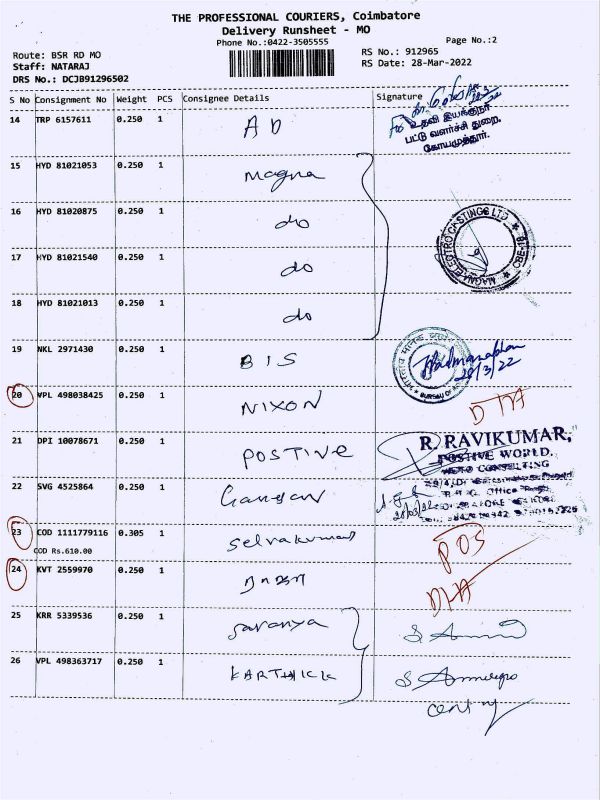 THE PROFESSIONAL COURIERS, Coimbatore
Delivery Runsheet - MO
Phone No.:0422-3505555
Page No.:2
Route: BSR RD MO
Staff: NATARAJ
DRS No.: DCJB91296502
RS No.: 912965
RS Date: 28-Mar-2022
S No Consignment No Weight PCS Consignee Details Signature
14 TRP 6157611 0.250 1 A D
உதவி இயக்குநர்
பட்டு வளர்ச்சி துறை,
கோயமுத்தூர்.
15 HYD 81021053 0.250 1 Magna
16 HYD 81020875 0.250 1 do
MAGNA ELECTRO CASTINGS LTD
17 HYD 81021540 0.250 1 do
18 HYD 81021013 0.250 1 do
19 NKL 2971430 0.250 1 BIS
Padmanabhan
28/3/22
20 VPL 498038425 0.250 1 NIXON
21 DPI 10078671 0.250 1 POSTIVE
R. RAVIKUMAR,
POSTIVE WORLD,
CONSULTING
22 SVG 4525864 0.250 1
23 COD 1111779116 0.305 1 Selvakumar
COD Rs.610.00
POS
24 KVT 2559970 0.250 1
25 KRR 5339536 0.250 1 Saranya
26 VPL 498363717 0.250 1 KARTHICK